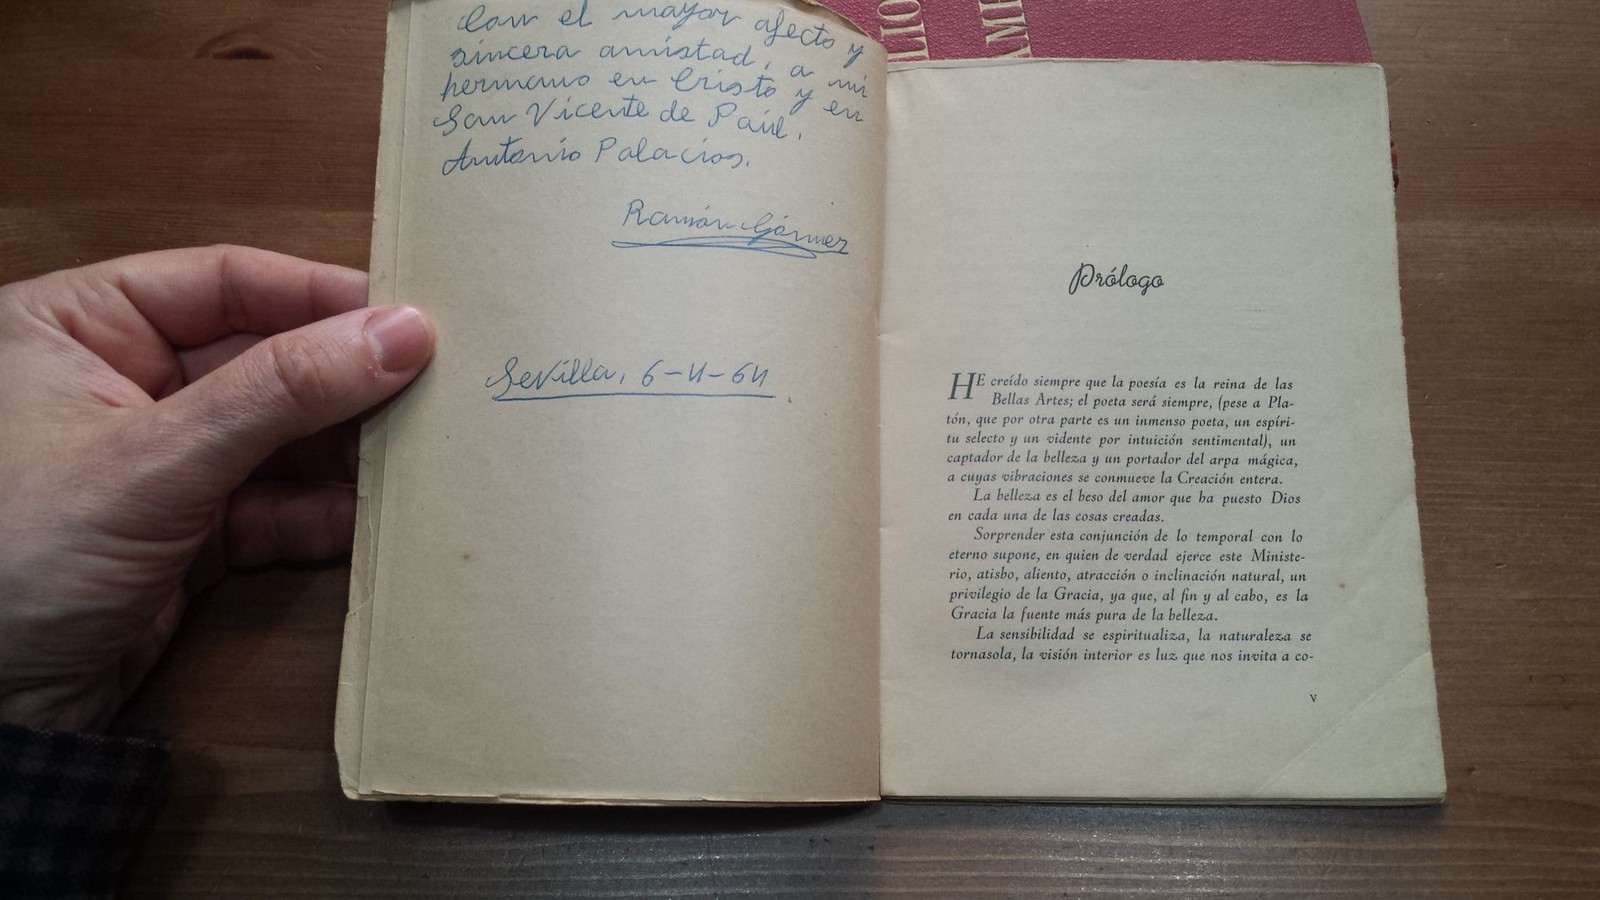 Con el mayor afecto y
sincera amistad, a mi
hermano en Cristo y en
San Vicente de Paúl,
Antonio Palacios.
Ramón Gómez
Sevilla, 6-4-64.
LIO
AMH
Prólogo
HE creído siempre que la poesía es la reina de las
Bellas Artes; el poeta será siempre, (pese a Pla-
tón, que por otra parte es un inmenso poeta, un espíri-
tu selecto y un vidente por intuición sentimental), un
captador de la belleza y un portador del arpa mágica,
a cuyas vibraciones se conmueve la Creación entera.
La belleza es el beso del amor que ha puesto Dios
en cada una de las cosas creadas.
Sorprender esta conjunción de lo temporal con lo
eterno supone, en quien de verdad ejerce este Ministe-
rio, atisbo, aliento, atracción o inclinación natural, un
privilegio de la Gracia, ya que, al fin y al cabo, es la
Gracia la fuente más pura de la belleza.
La sensibilidad se espiritualiza, la naturaleza se
tornasola, la visión interior es luz que nos invita a co-
V